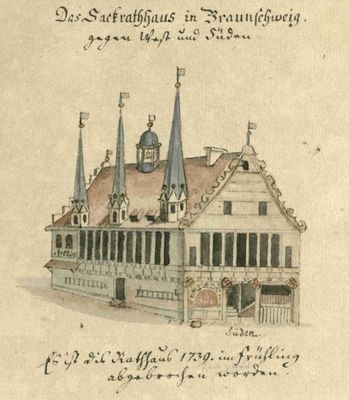 Das Sackrathhaus in Braunschweig.
gegen West und Süden.
Süden.
Es ist dis Rathhaus 1739. im Frühling
abgebrochen worden.